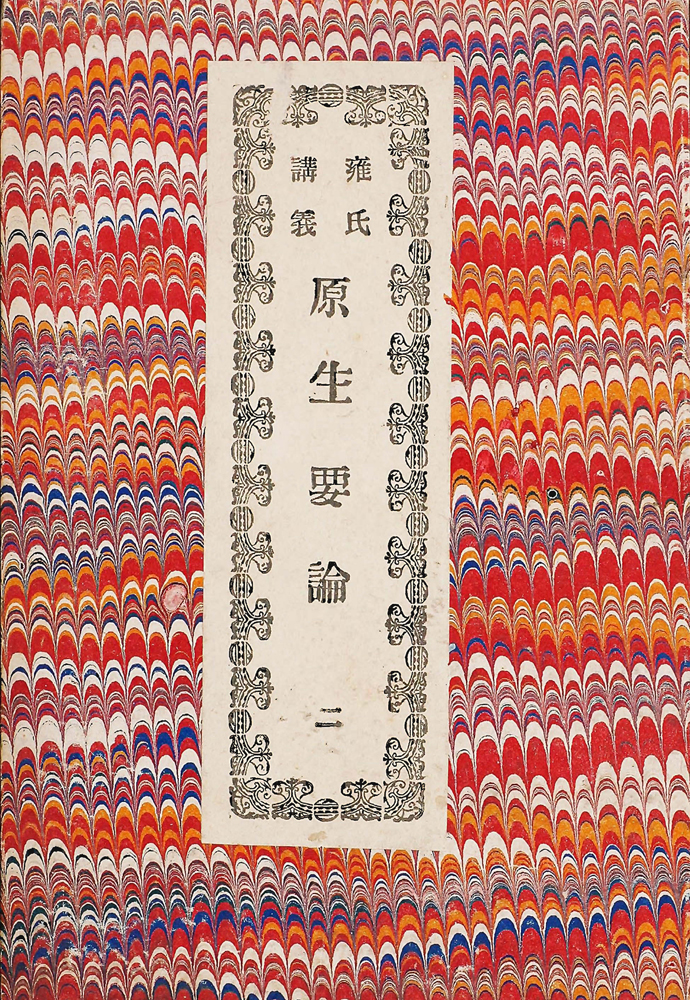 雍氏
講義
原生要論
二